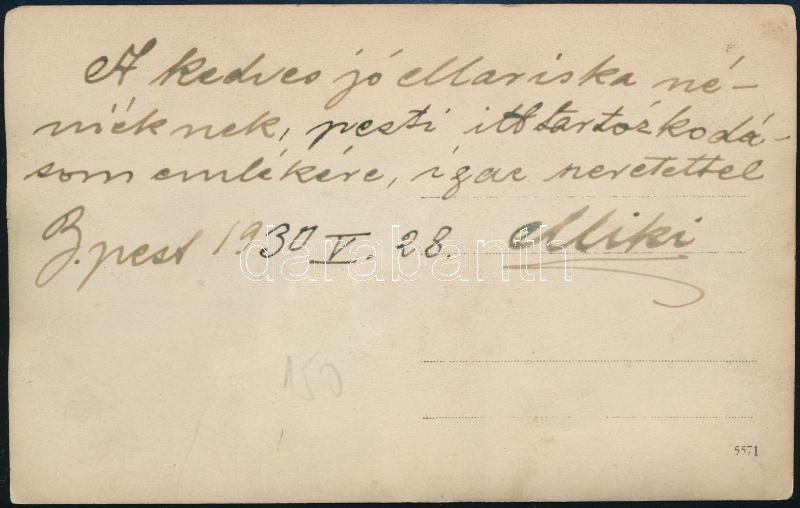 A kedves jó Mariska né-
niéknek, pesti itttartózkodá-
som emlékére, igaz szeretettel
B.pest 1930 V. 28. Miki
darabanth
150
5571